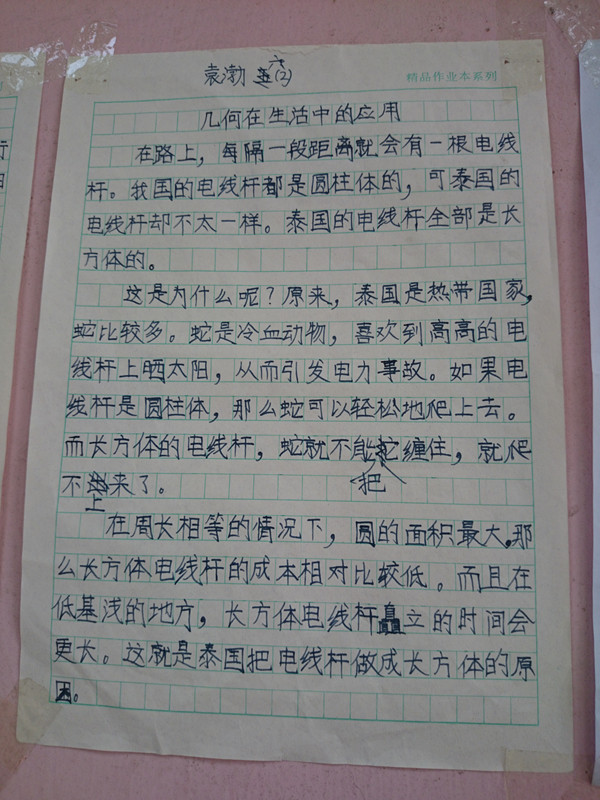 袁渤 六(2) 精品作业本系列
几何在生活中的应用
在路上，每隔一段距离就会有一根电线
杆。我国的电线杆都是圆柱体的，可泰国的
电线杆却不太一样。泰国的电线杆全部是长
方体的。
这是为什么呢？原来，泰国是热带国家，
蛇比较多。蛇是冷血动物，喜欢到高高的电
线杆上晒太阳，从而引发电力事故。如果电
线杆是圆柱体，那么蛇可以轻松地爬上去。
而长方体的电线杆，蛇就不能把它缠住，就爬
不上来了。
在周长相等的情况下，圆的面积最大，那
么长方体电线杆的成本相对比较低。而且在
低基浅的地方，长方体电线杆矗立的时间会
更长。这就是泰国把电线杆做成长方体的原
因。